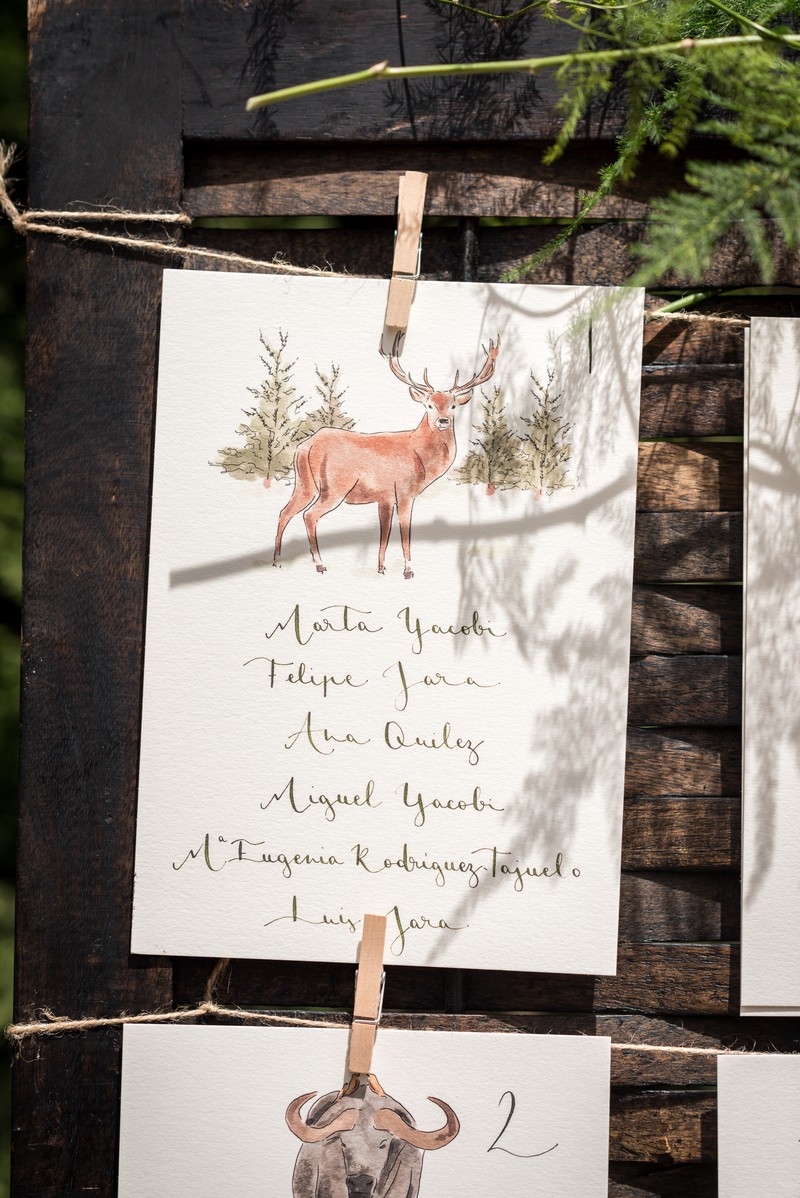 1
Marta Yacobi
Felipe Jara
Ana Quilez
Miguel Yacobi
Mª Eugenia Rodriguez-Tajuelo
Luis Jara
2